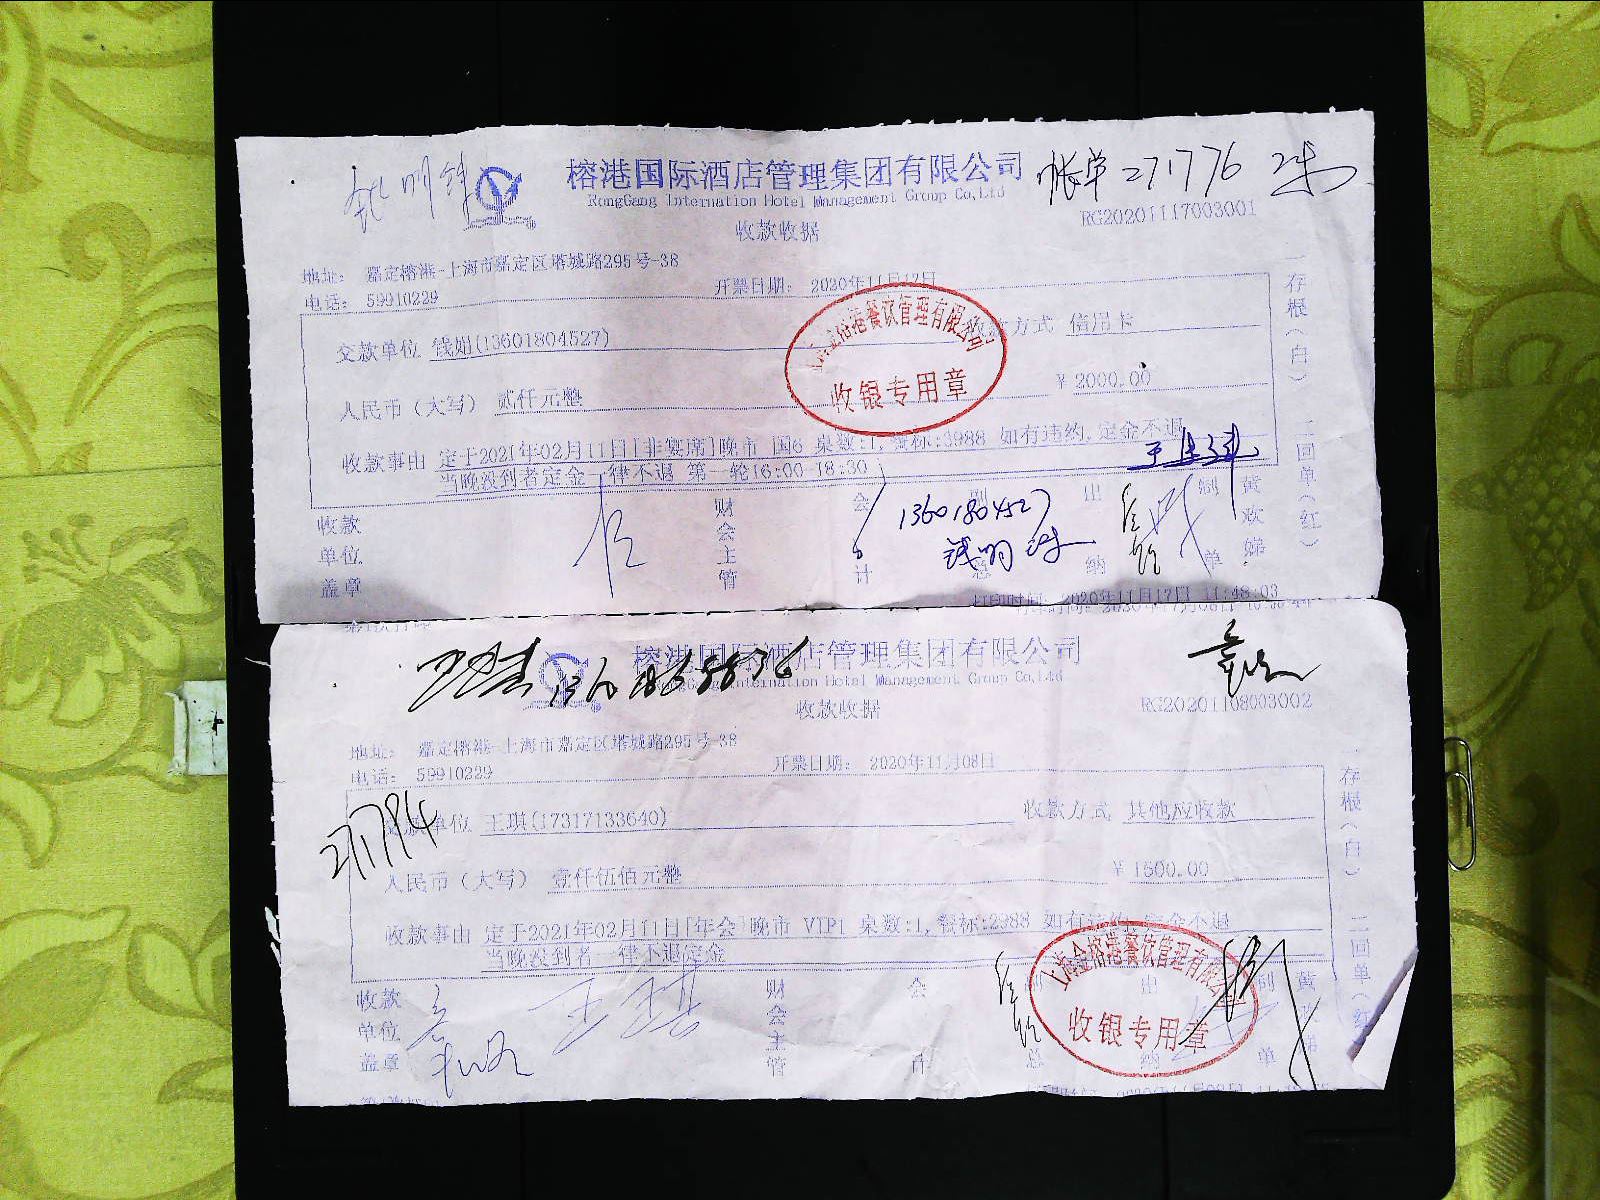 榕港国际酒店管理集团有限公司
帐单271776
RongGang Internation Hotel Management Group Co,Ltd
收款收据
RG20201117003001
地址: 嘉定榕港-上海市嘉定区塔城路295号-38
电话: 59910229
开票日期: 2020年11月17日
交款单位 钱娟(13601804527)
收款方式 信用卡
人民币(大写) 贰仟元整
¥ 2000.00
收款事由 定于2021年02月11日[非宴席]晚市 国6 桌数:1,餐标:3988 如有违约,定金不退
当晚没到者定金一律不退 第一轮16:00-18:30
收款单位盖章
财会主管
会计
出纳
制单
黄欢娣
13601804527
一存根(白) 二回单(红)
餐饮管理有限公司
收银专用章
打印时间: 2020年11月17日 11:48:03
榕港国际酒店管理集团有限公司
RongGang Internation Hotel Management Group Co,Ltd
收款收据
RG20201108003002
地址: 嘉定榕港-上海市嘉定区塔城路295号-38
电话: 59910229
开票日期: 2020年11月08日
271794
交款单位 王琪(17317133640)
收款方式 其他应收款
人民币(大写) 壹仟伍佰元整
¥ 1500.00
收款事由 定于2021年02月11日[年会]晚市 VIP1 桌数:1,餐标:2988 如有违约,定金不退
当晚没到者一律不退定金
收款单位盖章
王琪
财会主管
会计
出纳
制单
一存根(白) 二回单(红)
上海金榕港餐饮管理有限公司
收银专用章